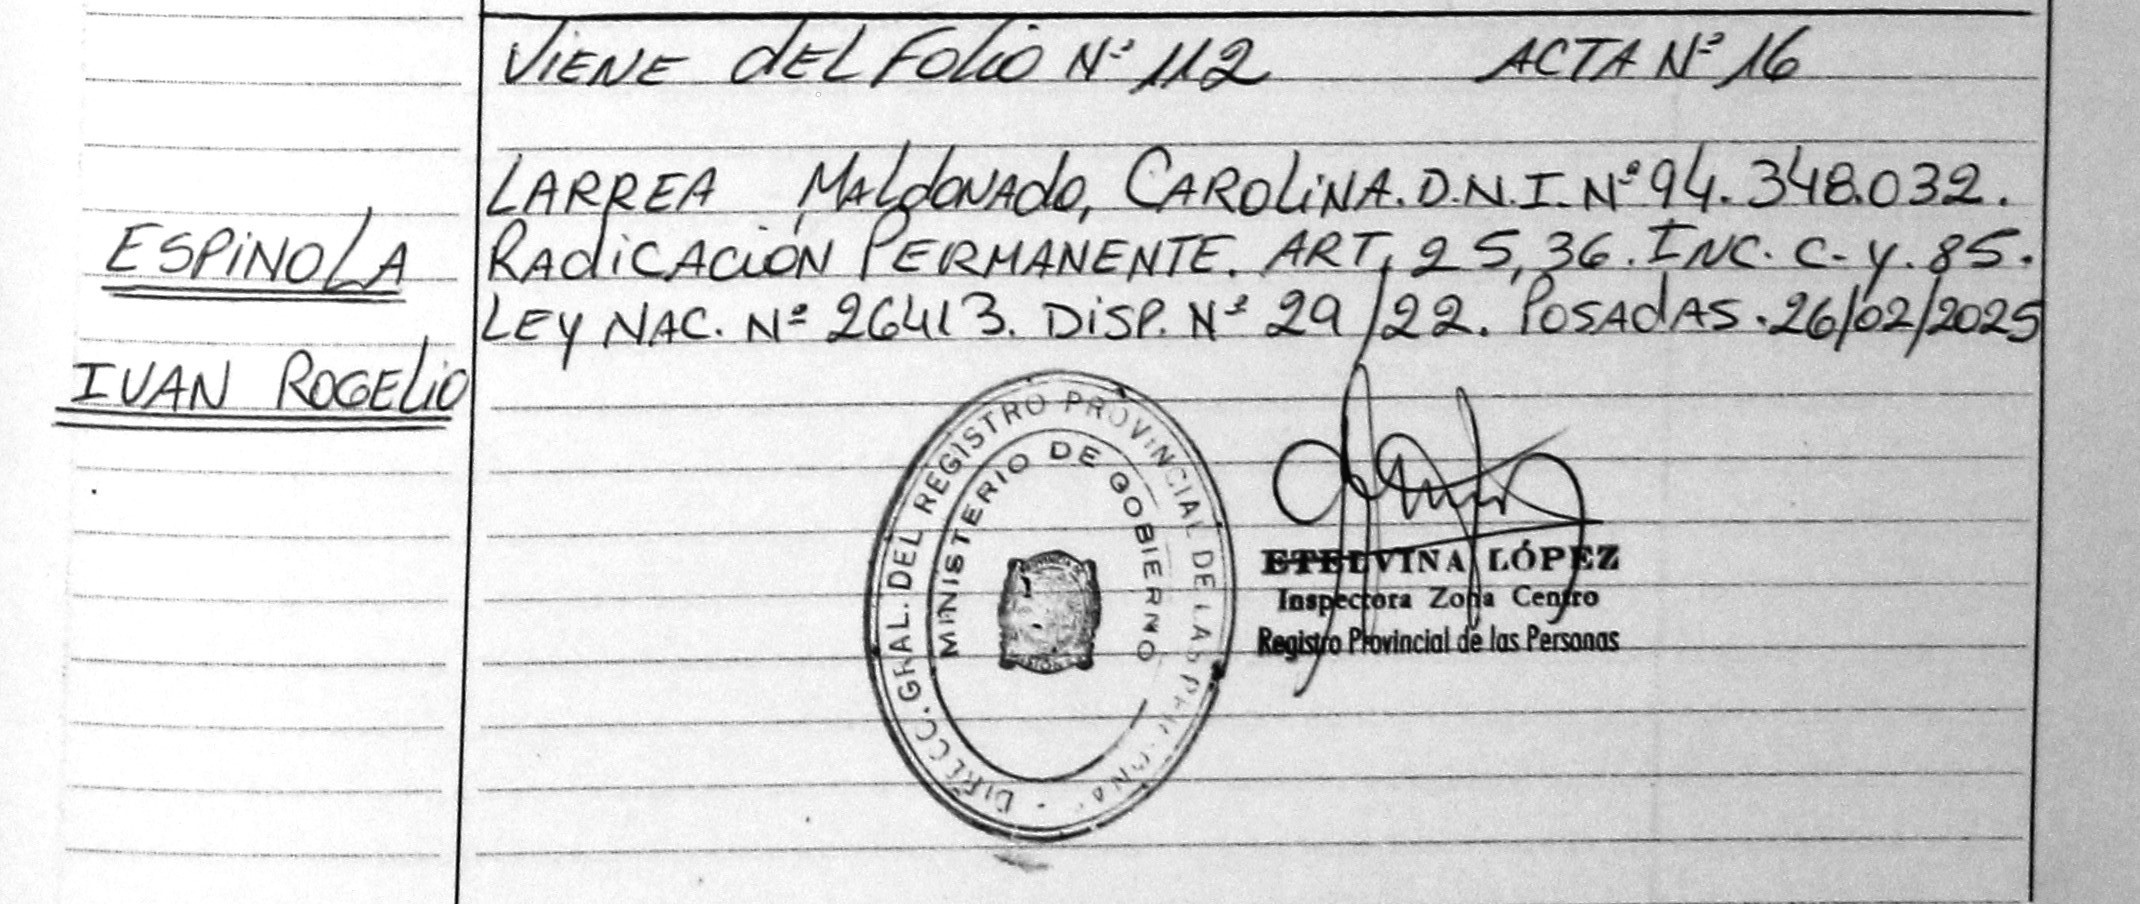 VIENE DEL FOLIO Nº 112 ACTA Nº 16
LARREA MALDONADO, CAROLINA. D.N.I. Nº 94.348.032.
RADICACIÓN PERMANENTE. ART, 25, 36. INC. C- y. 85.
LEY NAC. Nº 26413. DISP. Nº 29/22. POSADAS. 26/02/2025
ESPINOLA
IVAN ROGELIO
DIRECC. GRAL. DEL REGISTRO PROVINCIAL DE LAS
MINISTERIO DE GOBIERNO
ETELVINA LÓPEZ
Inspectora Zona Centro
Registro Provincial de las Personas